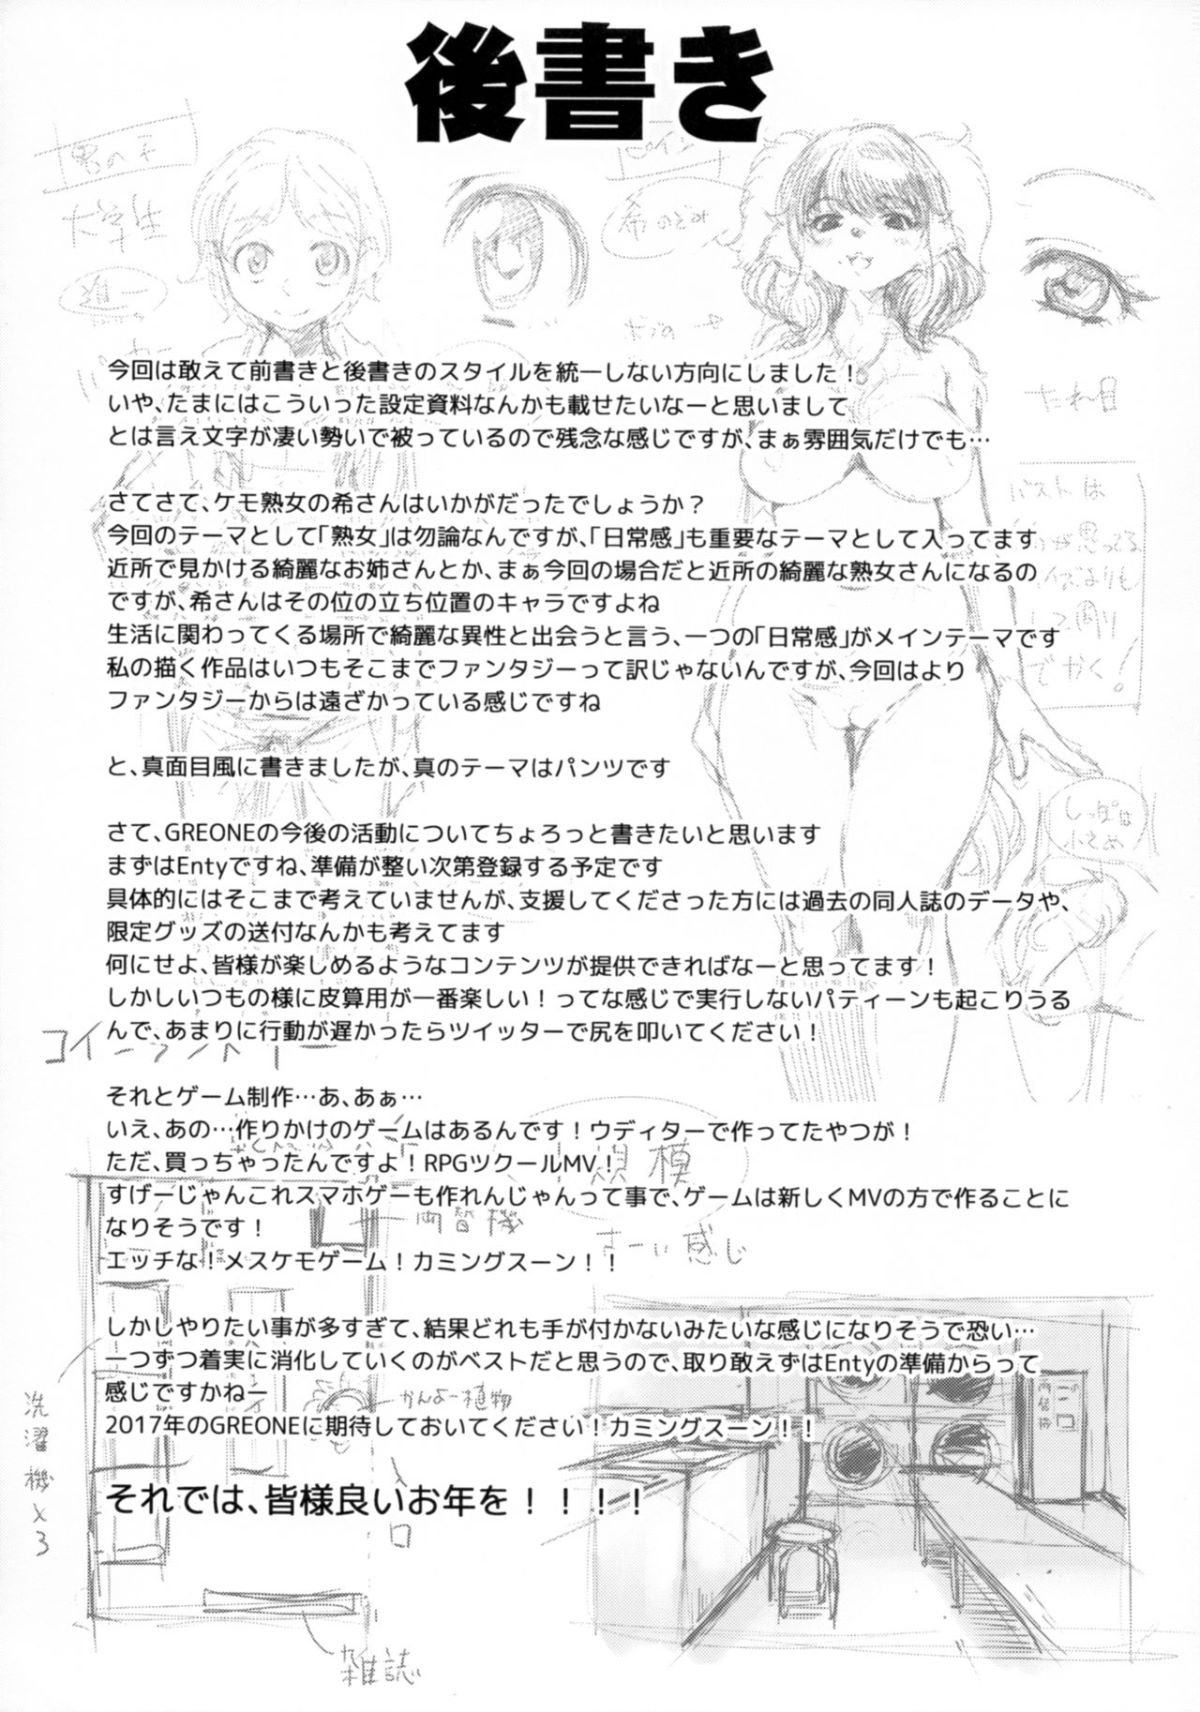 後書き
男の子
大学生
進一
ヒロイン
希 のぞみ
たれ目
今回は敢えて前書きと後書きのスタイルを統一しない方向にしました！
いや、たまにはこういった設定資料なんかも載せたいなーと思いまして
とは言え文字が凄い勢いで被っているので残念な感じですが、まぁ雰囲気だけでも…
さてさて、ケモ熟女の希さんはいかがだったでしょうか？
今回のテーマとして「熟女」は勿論なんですが、「日常感」も重要なテーマとして入ってます
近所で見かける綺麗なお姉さんとか、まぁ今回の場合だと近所の綺麗な熟女さんになるの
ですが、希さんはその位の立ち位置のキャラですよね
生活に関わってくる場所で綺麗な異性と出会うと言う、一つの「日常感」がメインテーマです
私の描く作品はいつもそこまでファンタジーって訳じゃないんですが、今回はより
ファンタジーからは遠ざかっている感じですね
バストは
でかく！
と、真面目風に書きましたが、真のテーマはパンツです
しっぽは
小さめ
さて、GREONEの今後の活動についてちょろっと書きたいと思います
まずはEntyですね、準備が整い次第登録する予定です
具体的にはそこまで考えていませんが、支援してくださった方には過去の同人誌のデータや、
限定グッズの送付なんかも考えてます
何にせよ、皆様が楽しめるようなコンテンツが提供できればなーと思ってます！
しかしいつもの様に皮算用が一番楽しい！ってな感じで実行しないパティーンも起こりうる
んで、あまりに行動が遅かったらツイッターで尻を叩いてください！
コインランドリー
それとゲーム制作…あ、あぁ…
いえ、あの…作りかけのゲームはあるんです！ウディターで作ってたやつが！
ただ、買っちゃったんですよ！RPGツクールMV！
すげーじゃんこれスマホゲーも作れんじゃんって事で、ゲームは新しくMVの方で作ることに
なりそうです！
エッチな！メスケモゲーム！カミングスーン！！
規模
両替機
感じ
しかしやりたい事が多すぎて、結果どれも手が付かないみたいな感じになりそうで恐い…
一つずつ着実に消化していくのがベストだと思うので、取り敢えずはEntyの準備からって
感じですかねー
2017年のGREONEに期待しておいてください！カミングスーン！！
かんよー植物
洗濯機×3
両替機
それでは、皆様良いお年を！！！！
入口
雑誌